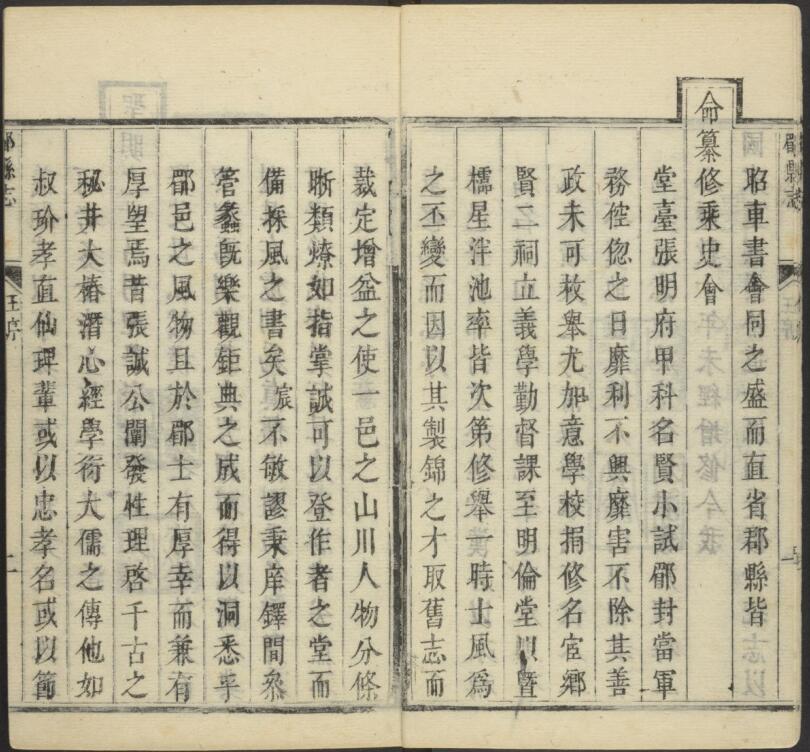 昭車書會同之盛而直省郡縣皆
命纂修乘史會
堂臺張明府甲科名賢小試郿封當軍
務倥偬之日靡利不興靡害不除其善
政未可枚舉尤加意學校捐修名宦鄉
賢二祠立義學勤督課至明倫堂以暨
櫺星泮池率皆次第修舉一時士風爲
之丕變而因以其製錦之才取舊志而
裁定增益之使一邑之山川人物分條
晰類燎如指掌誠可以登作者之堂而
備採風之書矣宸不敏謬秉庠鐸間參
管蠡旣樂觀鉅典之成而得以洞悉乎
郿邑之風物且於郿士有厚幸而兼有
厚望焉昔張誠公闡發性理啓千古之
秘井大椿潛心經學衍大儒之傳他如
叔玠孝直仙理輩或以忠孝名或以節
郿縣志
王序
二